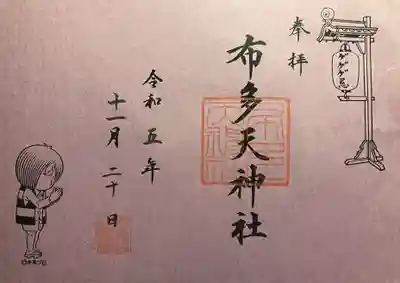 奉拝
布多天神社
令和五年
十一月二十日
ゲゲゲ忌
©水木プロ